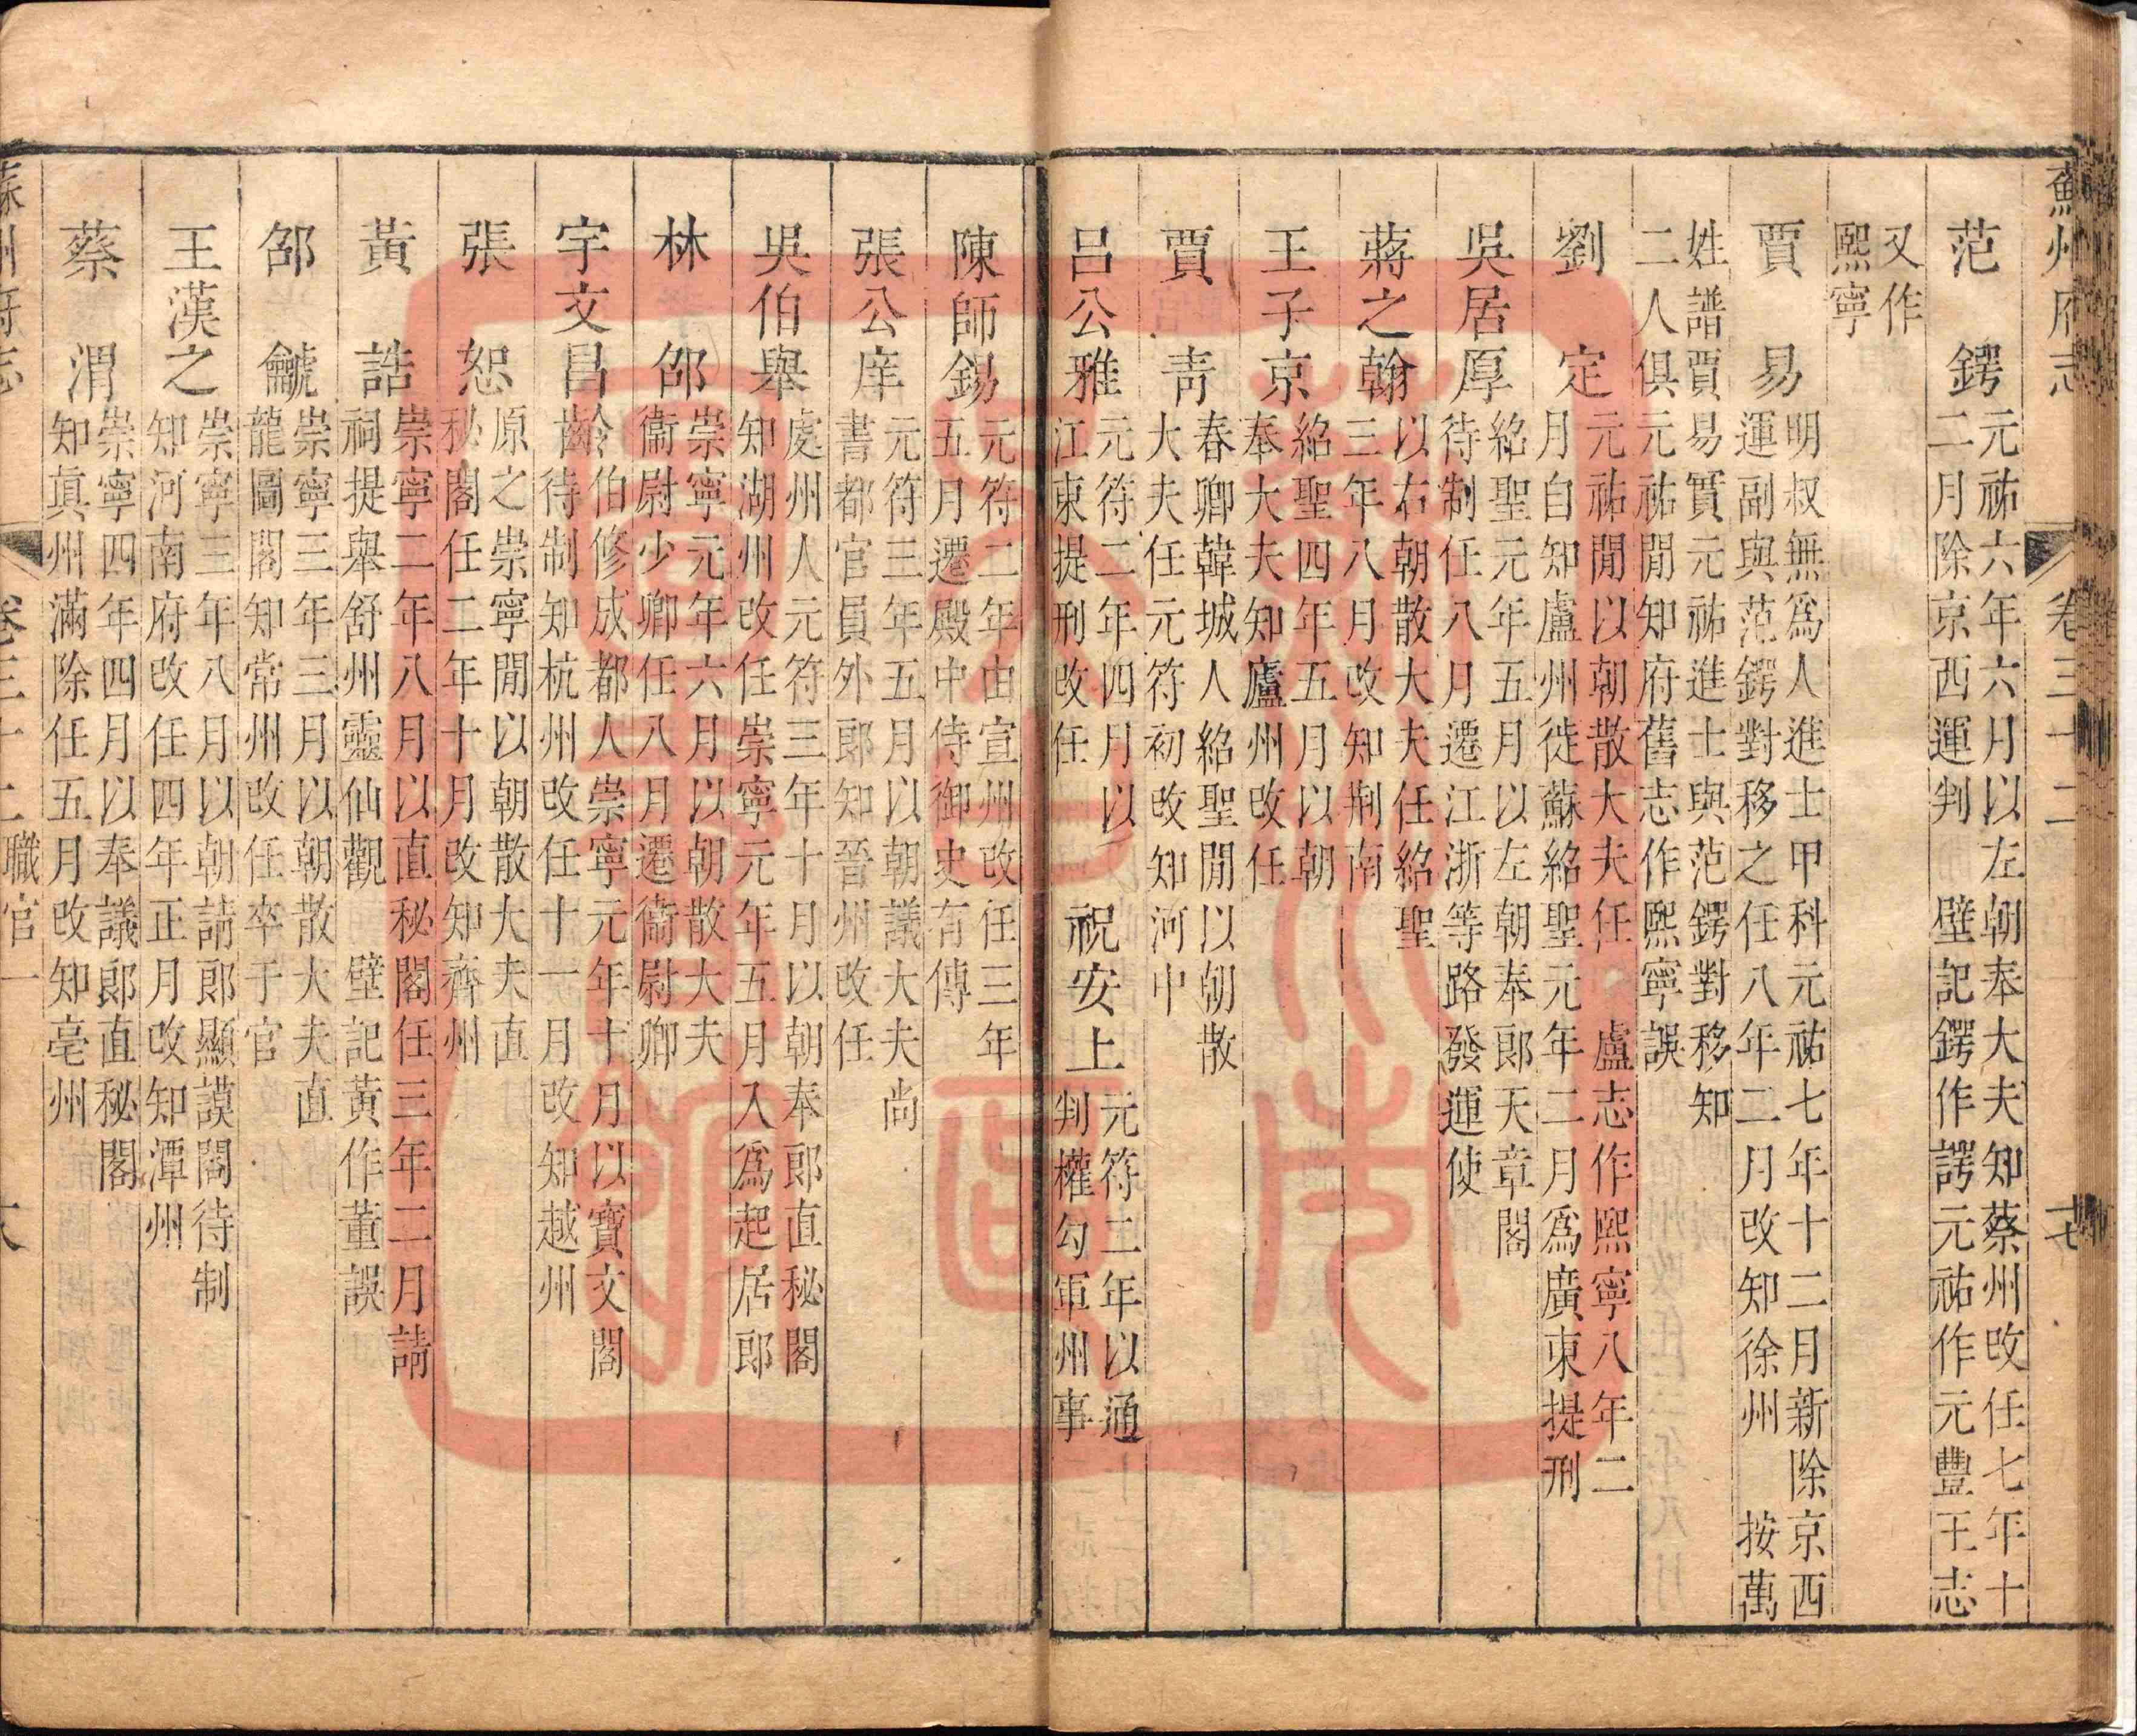 蘇州府志 卷三十二
范 鍔 元祐六年六月以左朝奉大夫知蔡州改任七年十
二月除京西運判 壁記鍔作諤元祐作元豐王志
又作
熙寧
賈 易 明叔無為人進士甲科元祐七年十二月新除京西
運副與范鍔對移之任八年二月改知徐州 按萬
姓譜賈易賈元祐進士與范鍔對移知
二人俱元祐閒知府舊志作熙寧誤
劉 定 元祐閒以朝散大夫任 盧志作熙寧八年二
月自知盧州徙蘇紹聖元年二月為廣東提刑
吳居厚 紹聖元年五月以左朝奉郎天章閣
待制任八月遷江浙等路發運使
蔣之翰 以右朝散大夫任紹聖
三年八月改知荆南
王子京 紹聖四年五月以朝
奉大夫知廬州改任
賈 青 春卿韓城人紹聖閒以朝散
大夫任元符初改知河中
呂公雅 元符二年四月以
江東提刑改任
祝安上 元符二年以通
判權勾軍州事
陳師錫 元符二年由宣州改任三年
五月遷殿中侍御史有傳
張公庠 元符三年五月以朝議大夫尚
書都官員外郎知晉州改任
吳伯舉 處州人元符三年十月以朝奉郎直秘閣
知湖州改任崇寧元年五月入為起居郎
林 邵 崇寧元年六月以朝散大夫
衞尉少卿任八月遷衞尉卿
宇文昌齡 伯修成都人崇寧元年十月以寶文閣
待制知杭州改任十一月改知越州
張 恕 原之崇寧閒以朝散大夫直
秘閣任二年十月改知齊州
黃 誥 崇寧二年八月以直秘閣任三年二月請
祠提舉舒州靈仙觀 壁記黃作董誤
邵 䶵 崇寧三年三月以朝散大夫直
龍圖閣知常州改任卒于官
王漢之 崇寧三年八月以朝請郎顯謨閣待制
知河南府改任四年正月改知潭州
蔡 渭 崇寧四年四月以奉議郎直秘閣
知真州滿除任五月改知亳州
蘇州府志 卷三十二職官一